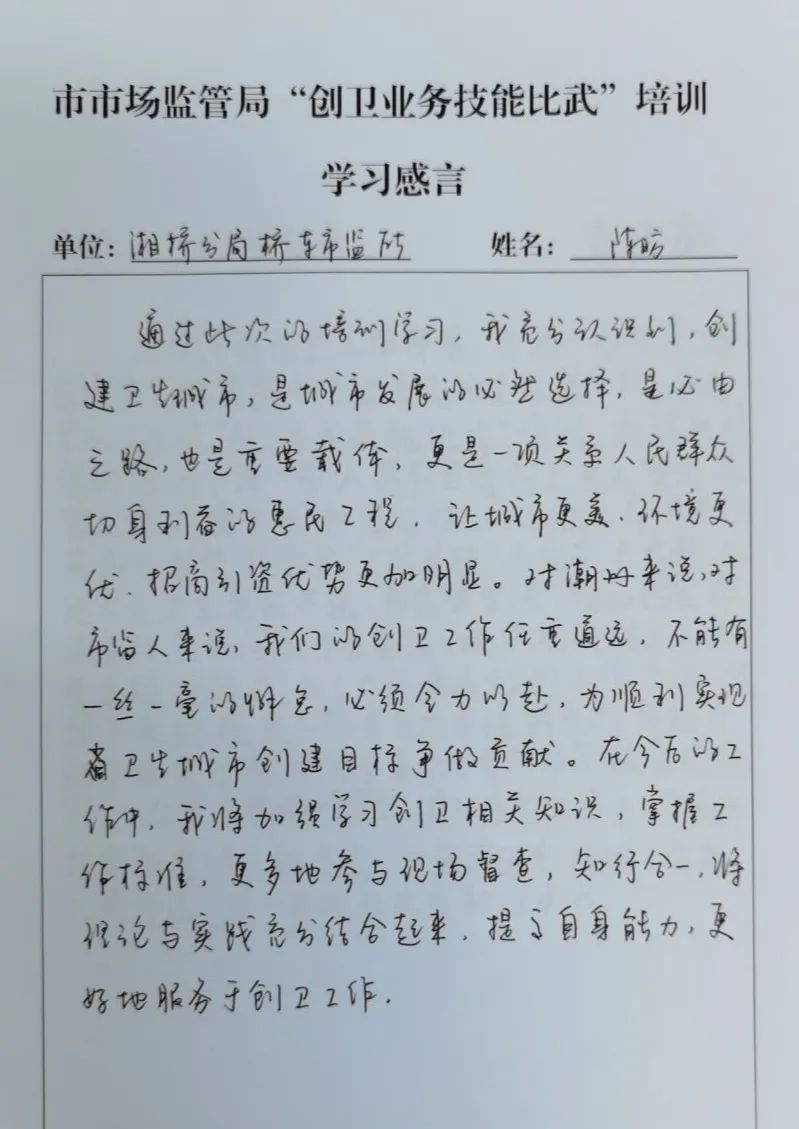 市市场监管局“创卫业务技能比武”培训
学习感言
单位：湘桥分局桥东市监所 姓名：陈昉
通过此次的培训学习，我充分认识到，创
建卫生城市，是城市发展的必然选择，是必由
之路，也是重要载体，更是一项关系人民群众
切身利益的惠民工程，让城市更美、环境更
优、招商引资优势更加明显。对潮州来说，对
市监人来说，我们的创卫工作任重道远，不能有
一丝一毫的懈怠，必须全力以赴，为顺利实现
省卫生城市创建目标争做贡献。在今后的工
作中，我将加强学习创卫相关知识，掌握工
作标准，更多地参与现场督查，知行合一，将
理论与实践充分结合起来，提高自身能力，更
好地服务于创卫工作.